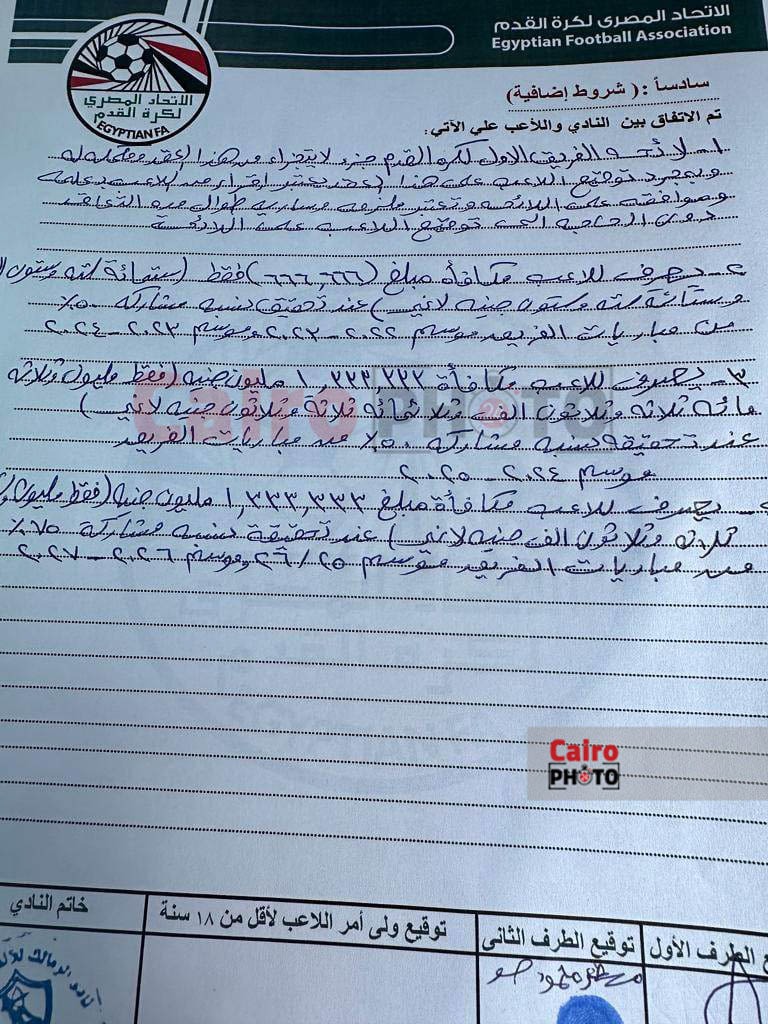 الاتحاد المصرى لكرة القدم
Egyptian Football Association
الاتحاد المصرى
لكرة القدم
EGYPTIAN FA
سادساً : ( شروط إضافية )
تم الاتفاق بين النادي واللاعب علي الآتي :
١- لائحه الفريق الاول لكرة القدم جزء لا يتجزأ من هذا العقد ومكمله له
وبمجرد توقيع اللاعب على هذا العقد يعتبر اقرار من اللاعب بعلمه
وموافقته على اللائحه وتعتبر ملزمه وساريه طوال مده التعاقد
دون الحاجه الى توقيع اللاعب على اللائحة
٢- يصرف للاعب مكافأة مبلغ (٦٦٦,٦٦٦) فقط (ستمائة سته وستون
وستمائه سته وستون جنيه لاغير) عند تحقيق نسبه مشاركه ٥٠٪
من مباريات الفريق موسم ٢٠٢٢-٢٠٢٣ وموسم ٢٠٢٣-٢٠٢٤
٣- يصرف للاعب مكافأة ١,٣٣٣,٣٣٣ مليون جنيه (فقط مليون وثلاثه
مائه ثلاثه وثلاثون الف وثلاثمائه ثلاثة وثلاثون جنيه لاغير)
عند تحقيقه نسبه مشاركه ٥٠٪ من مباريات الفريق
موسم ٢٠٢٤-٢٠٢٥
يصرف للاعب مكافأة مبلغ ١,٣٣٣,٣٣٣ مليون جنيه (فقط مليون
ثلاثه وثلاثون الف جنيه لاغير) عند تحقيقة نسبه مشاركة ٧٥٪
من مباريات الفريق موسم ٢٥/٢٦ وموسم ٢٠٢٦-٢٠٢٧
Cairo PHOTO
Cairo
PHOTO
الطرف الأول
توقيع الطرف الثانى
توقيع ولى أمر اللاعب لأقل من ١٨ سنة
خاتم النادي
نادى الزمالك